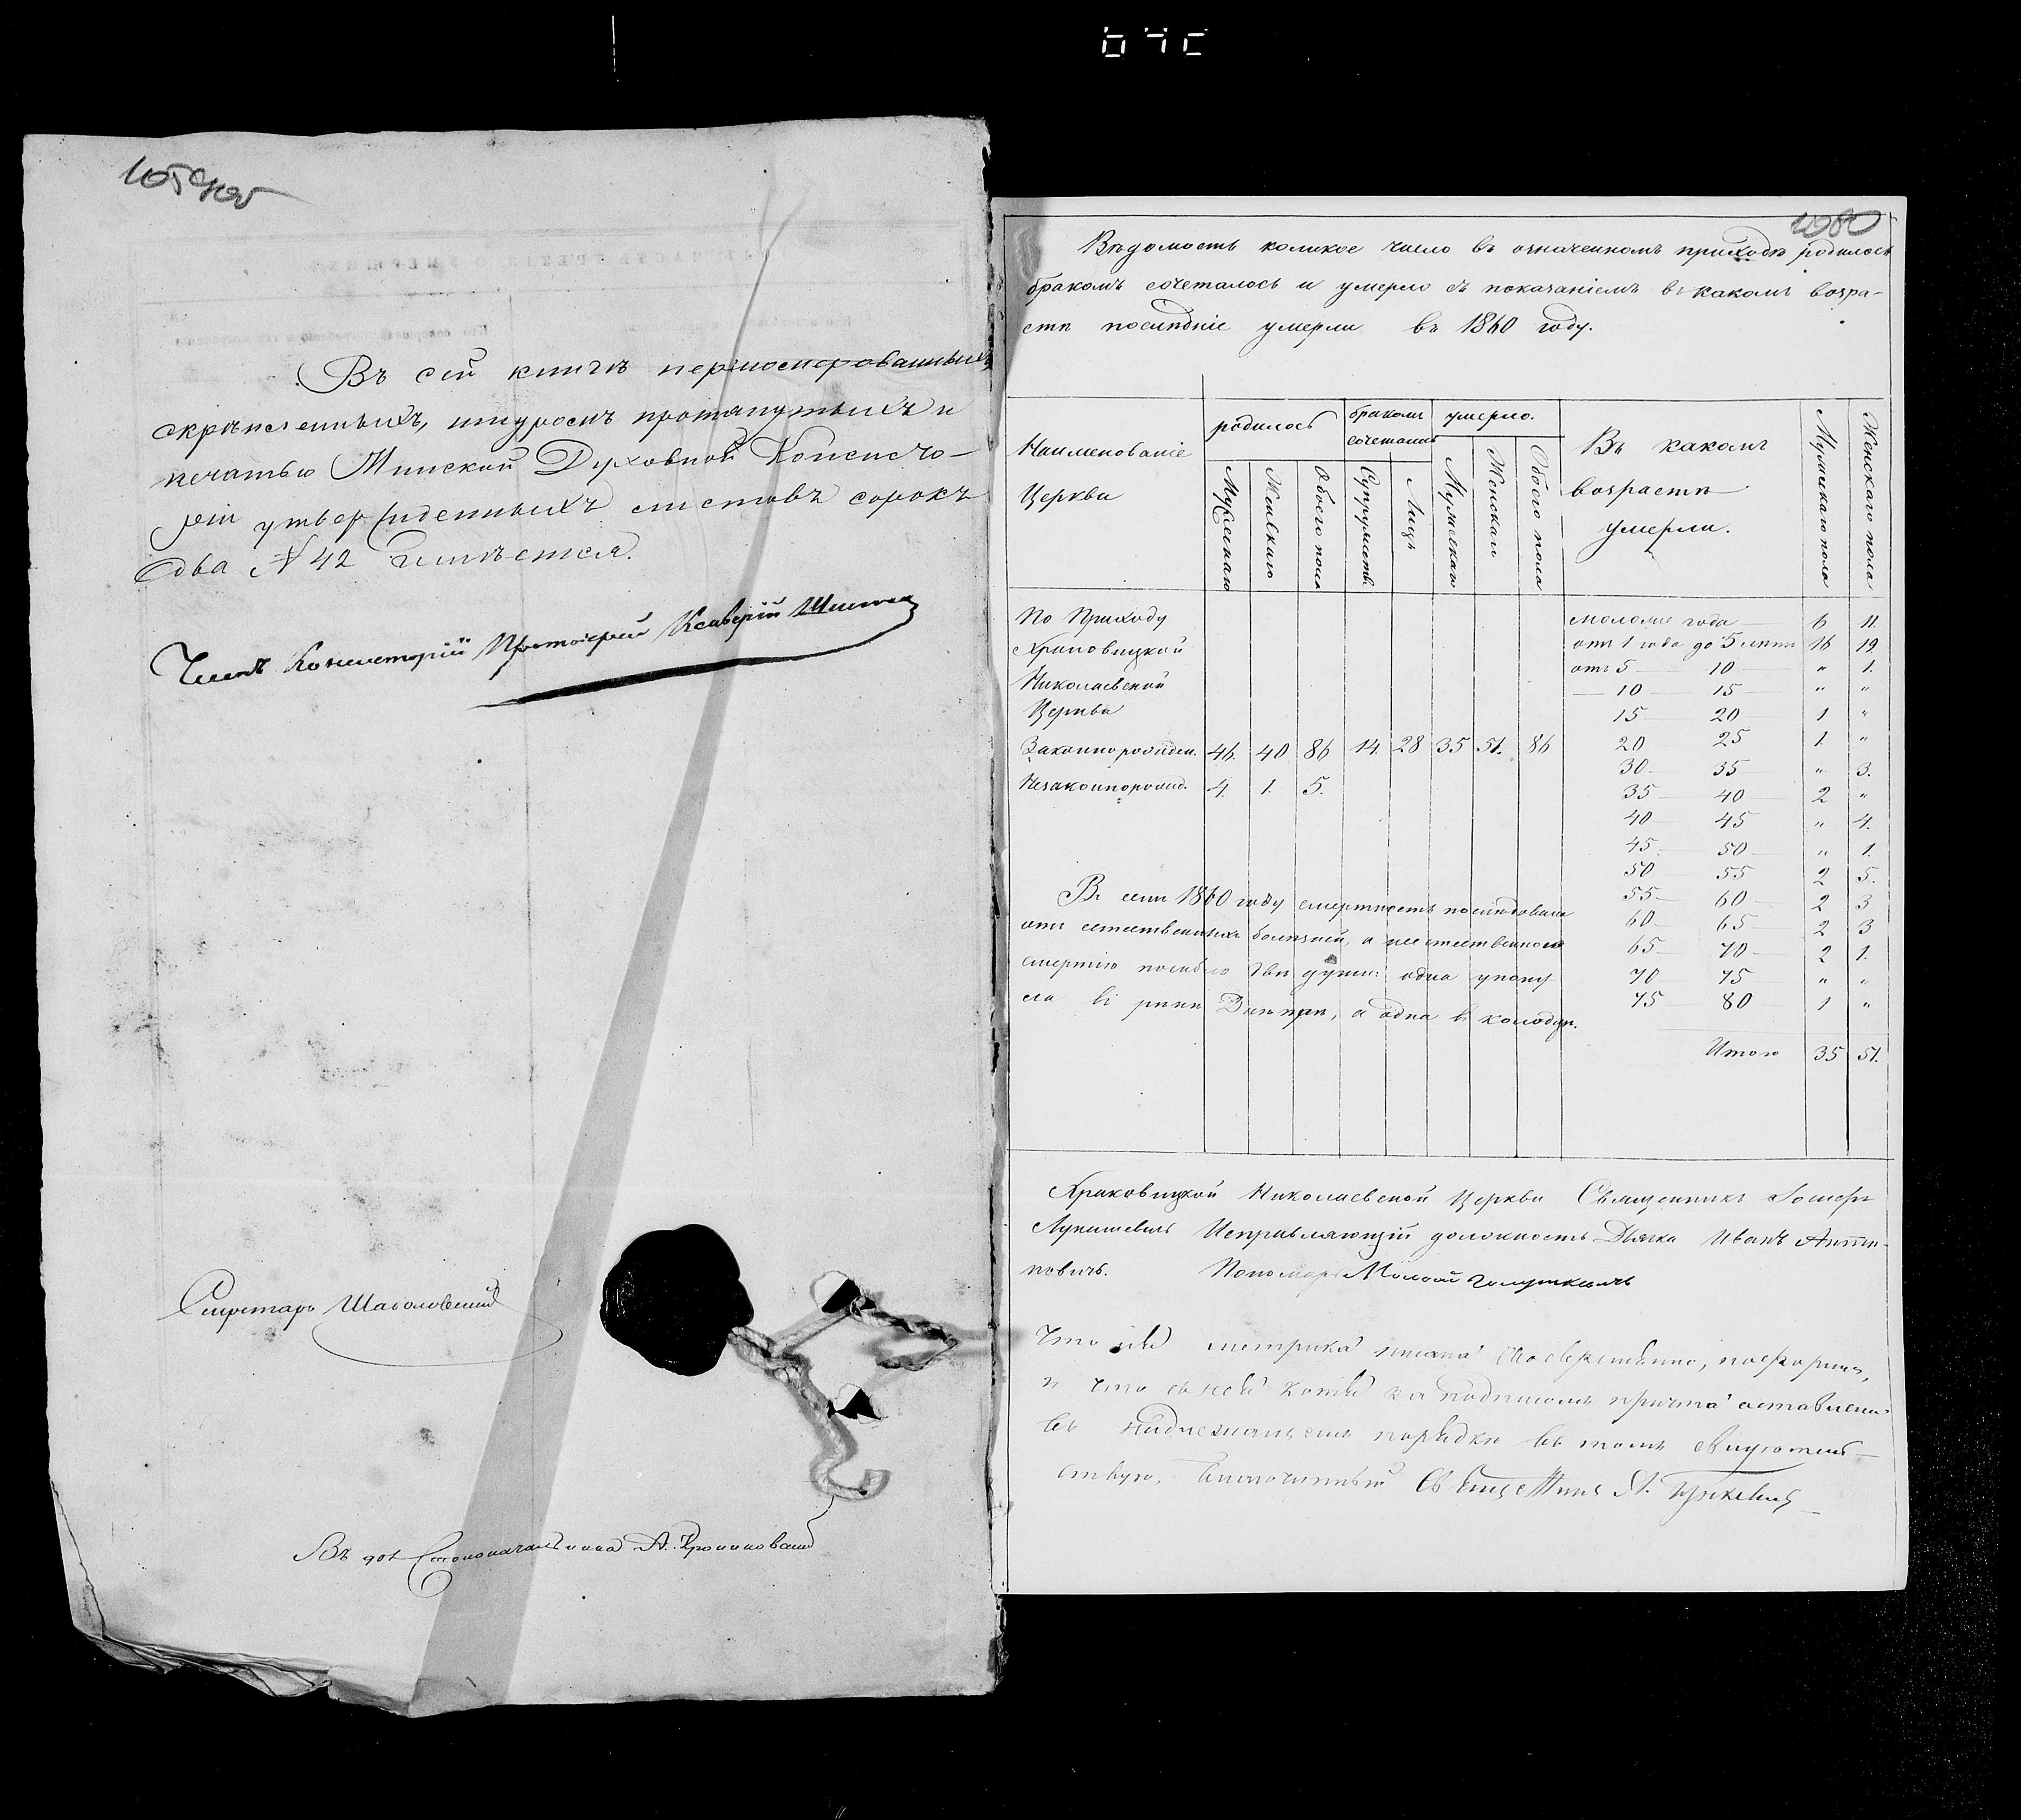 Въ сей книгѣ перномерованныхъ,
скрѣпленныхъ, шнуромъ протянутыхъ и
печатью Минской Духовной Консисто-
ріи утвержденныхъ листовъ сорокъ
два № 42 имѣется.
Членъ Консисторіи Протоіерей Ксаверій
Секретарь Шаболовскій
Въ дол Столоначальника А.
1080
Вѣдомость коликое число въ означенномъ приходѣ родилось
бракомъ сочеталось и умерло съ показаніемъ въ какомъ возра-
стѣ послѣдніе умерли въ 1860 году.
Наименованіе Церкви
родилось
Мужескаго
Женскаго
Обоего пола
бракомъ сочеталось
Супружествъ
Лицъ
умерло.
Мужескаго
Женскаго
Обоего пола
Въ какомъ
возрастѣ
умерли.
Мужескаго пола
Женскаго пола
По Приходу
Храковицкой
Николаевской
Церкви
Законнорожден. 46. 40 86 14. 28 35 51. 86
Незаконнорожд. 4. 1. 5.
моложе года 6 11
отъ 1 года до 5 лѣтъ 16 19
отъ 5 — 10 — " 1.
— 10 — 15 — " "
15 — 20 — 1 "
20 25 1. "
30 — 35 " 3.
35 — 40 — 2 "
40 45 " 4.
45 50 " 1.
50 55 2 5.
55 — 60 — 2 3
60 — 65 — 2 3
65 — 70 — 2 1.
70 75 " "
75 80 1 "
Итого 35 51.
Въ семъ 1860 году смертность послѣдовала
отъ естественныхъ болѣзней, а неестественною
смертію погибло двѣ души: одна утону
ла въ рѣкѣ Днѣпрѣ, а одна въ колодцѣ.
Храковицкой Николаевской Церкви Священникъ Іосифъ
Лукашевичъ Исправляющій должность Дьячка Иванъ
новичъ. Пономарь
Что сія метрика писана своевременно, по формѣ,
и что съ ней копія за подписомъ причта оставлена
въ надлежащемъ порядкѣ въ томъ свидѣтель-
ствую, Благочинный Священникъ